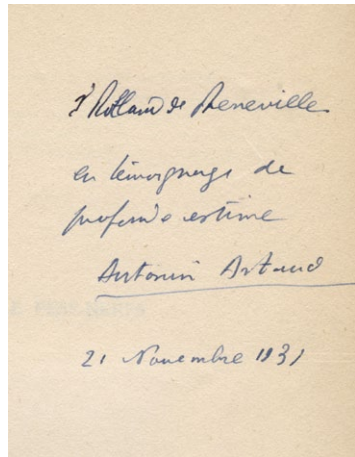 à Rolland de Reneville
en témoignage de
profonde estime
Antonin Artaud
21 Novembre 1931